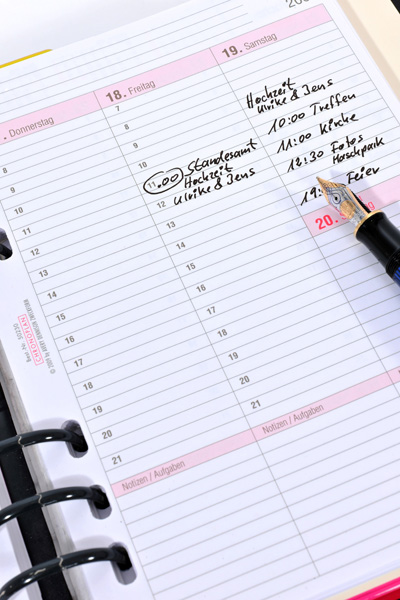 200
19. Samstag
Hochzeit
Ulrike & Jens
10:00 Treffen
11:00 Kirche
12:30 Fotos
Moschpark
19: Feier
20.
18. Freitag
7
8
9
10
11.00 Standesamt
Hochzeit
12 Ulrike & Jens
13
14
15
16
17
18
19
20
21
Notizen / Aufgaben
. Donnerstag
8
9
10
11
12
13
14
15
16
17
18
19
20
21
Notizen / Aufgaben
CHRONOPLAN